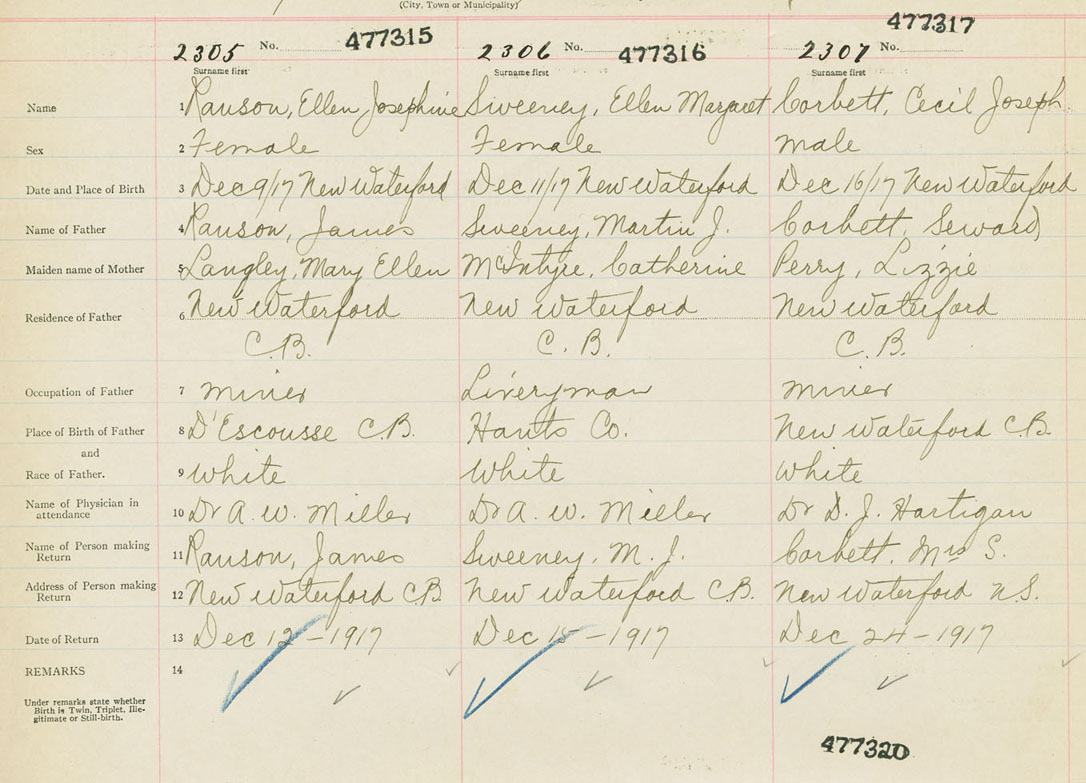 (City, Town or Municipality)
2305 No. 477315 2306 No. 477316 2307 No. 477317
Surname first Surname first Surname first
Name 1 Ranson, Ellen Josephine Sweeney, Ellen Margaret Corbett, Cecil Joseph
Sex 2 Female Female male
Date and Place of Birth 3 Dec 9/17 New Waterford Dec 11/17 New Waterford Dec 16/17 New Waterford
Name of Father 4 Ranson, James Sweeney, Martin J. Corbett, Seward
Maiden name of Mother 5 Langley, Mary Ellen McIntyre, Catherine Perry, Lizzie
Residence of Father 6 New Waterford New Waterford New Waterford
C.B. C.B. C.B.
Occupation of Father 7 miner Liveryman miner
Place of Birth of Father 8 D'Escousse C.B. Hants Co. New Waterford C.B.
and
Race of Father. 9 white White white
Name of Physician in
attendance 10 Dr A. W. Miller Dr A. W. Miller Dr D. J. Hartigan
Name of Person making
Return 11 Ranson, James Sweeney, M. J. Corbett, Mrs S.
Address of Person making
Return 12 New Waterford CB New Waterford C.B. New Waterford N.S.
Date of Return 13 Dec 12-1917 Dec 15-1917 Dec 24-1917
REMARKS 14
Under remarks state whether
Birth is Twin, Triplet, Ille-
gitimate or Still-birth.
477320